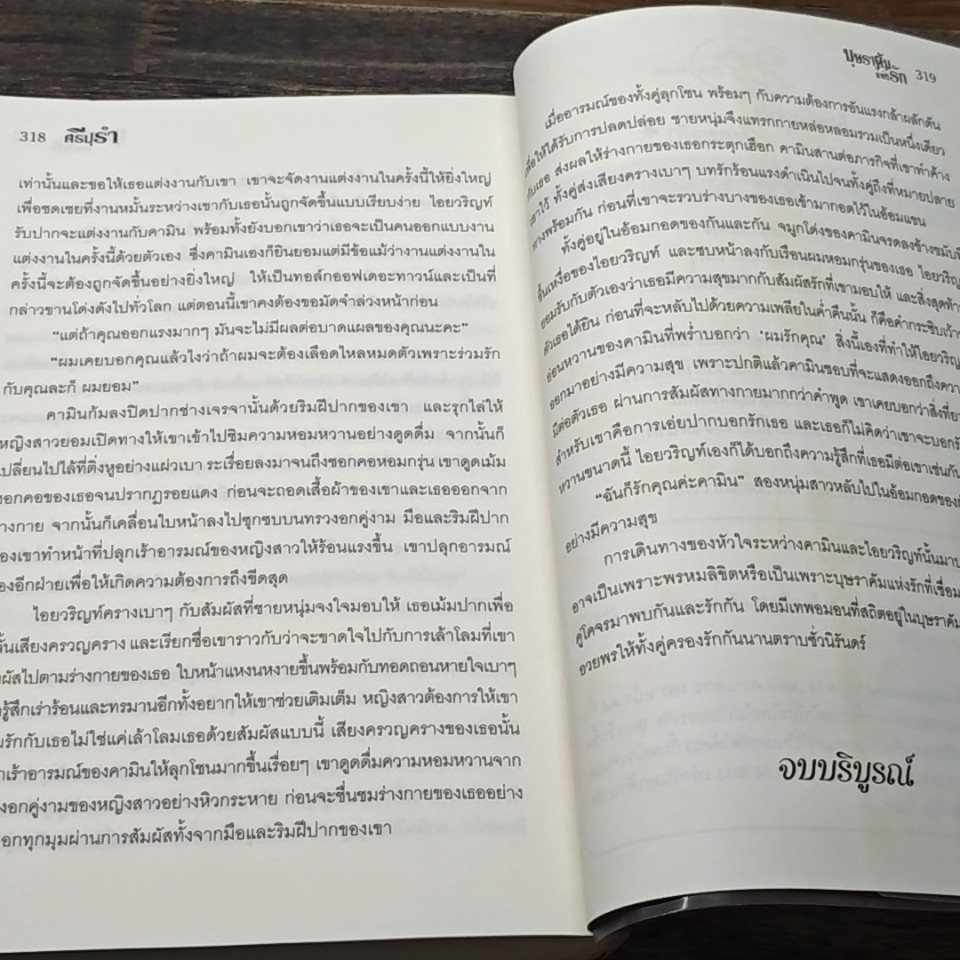 318 ศิรีบุรำ
เท่านั้นและขอให้เธอแต่งงานกับเขา เขาจะจัดงานแต่งงานในครั้งนี้ให้ยิ่งใหญ่
เพื่อชดเชยที่งานหมั้นระหว่างเขากับเธอนั้นถูกจัดขึ้นแบบเรียบง่าย ไอยวริญท์
รับปากจะแต่งงานกับคามิน พร้อมทั้งยังบอกเขาว่าเธอจะเป็นคนออกแบบงาน
แต่งงานในครั้งนี้ด้วยตัวเอง ซึ่งคามินเองก็ยินยอมแต่มีข้อแม้ว่างานแต่งงานใน
ครั้งนี้จะต้องถูกจัดขึ้นอย่างยิ่งใหญ่ ให้เป็นทอล์กออฟเดอะทาวน์และเป็นที่
กล่าวขานโด่งดังไปทั่วโลก แต่ตอนนี้เขาคงต้องขอมัดจำล่วงหน้าก่อน
“แต่ถ้าคุณออกแรงมากๆ มันจะไม่มีผลต่อบาดแผลของคุณนะคะ”
“ผมเคยบอกคุณแล้วไงว่าถ้าผมจะต้องเลือดไหลหมดตัวเพราะร่วมรัก
กับคุณละก็ ผมยอม”
คามินก้มลงปิดปากช่างเจรจานั้นด้วยริมฝีปากของเขา และรุกไล่ให้
หญิงสาวยอมเปิดทางให้เขาเข้าไปชิมความหอมหวานอย่างดูดดื่ม จากนั้นก็
เปลี่ยนไปไล้ที่ติ่งหูอย่างแผ่วเบา ระเรื่อยลงมาจนถึงซอกคอหอมกรุ่น เขาดูดเม้ม
ซอกคอของเธอจนปรากฏรอยแดง ก่อนจะถอดเสื้อผ้าของเขาและเธอออกจาก
างกาย จากนั้นก็เคลื่อนใบหน้าลงไปซุกซบบนทรวงอกคู่งาม มือและริมฝีปาก
องเขาทำหน้าที่ปลุกเร้าอารมณ์ของหญิงสาวให้ร้อนแรงขึ้น เขาปลุกอารมณ์
องอีกฝ่ายเพื่อให้เกิดความต้องการถึงขีดสุด
ไอยวริญท์ครางเบาๆ กับสัมผัสที่ชายหนุ่มจงใจมอบให้ เธอเม้มปากเพื่อ
ั้นเสียงครวญคราง และเรียกชื่อเขาราวกับว่าจะขาดใจไปกับการเล้าโลมที่เขา
ผัสไปตามร่างกายของเธอ ใบหน้าแหงนหงายขึ้นพร้อมกับทอดถอนหายใจเบาๆ
รู้สึกเร่าร้อนและทรมานอีกทั้งอยากให้เขาช่วยเติมเต็ม หญิงสาวต้องการให้เขา
มรักกับเธอไม่ใช่แค่เล้าโลมเธอด้วยสัมผัสแบบนี้ เสียงครวญครางของเธอนั้น
เร้าอารมณ์ของคามินให้ลุกโชนมากขึ้นเรื่อยๆ เขาดูดดื่มความหอมหวานจาก
งอกคู่งามของหญิงสาวอย่างหิวกระหาย ก่อนจะชื่นชมร่างกายของเธออย่าง
อกทุกมุมผ่านการสัมผัสทั้งจากมือและริมฝีปากของเขา
บุษราคัมแห่งรัก 319
เมื่ออารมณ์ของทั้งคู่ลุกโชน พร้อมๆ กับความต้องการอันแรงกล้าผลักดัน
เพื่อให้ได้รับการปลดปล่อย ชายหนุ่มจึงแทรกกายหล่อหลอมรวมเป็นหนึ่งเดียว
กับเธอ ส่งผลให้ร่างกายของเธอกระตุกเฮือก คามินสานต่อภารกิจที่เขาทำค้าง
เอาไว้ ทั้งคู่ส่งเสียงครางเบาๆ บทรักร้อนแรงดำเนินไปจนทั้งคู่ถึงที่หมายปลาย
ทางพร้อมกัน ก่อนที่เขาจะรวบร่างบางของเธอเข้ามากอดไว้ในอ้อมแขน
ทั้งคู่อยู่ในอ้อมกอดของกันและกัน จมูกโด่งของคามินจรดลงข้างขมับที่
ชื้นเหงื่อของไอยวริญท์ และซบหน้าลงกับเรือนผมหอมกรุ่นของเธอ ไอยวริญ
ยอมรับกับตัวเองว่าเธอมีความสุขมากกับสัมผัสรักที่เขามอบให้ และสิ่งสุดท้า
ตัวเธอได้ยิน ก่อนที่จะหลับไปด้วยความเพลียในค่ำคืนนั้น ก็คือคำกระซิบเว้า
อ่อนหวานของคามินที่พร่ำบอกว่า ‘ผมรักคุณ’ สิ่งนี้เองที่ทำให้ไอยวริญ
ออกมาอย่างมีความสุข เพราะปกติแล้วคามินชอบที่จะแสดงออกถึงควา
มีต่อตัวเธอ ผ่านการสัมผัสทางกายมากกว่าคำพูด เขาเคยบอกว่าสิ่งที่ยา
สำหรับเขาคือการเอ่ยปากบอกรักเธอ และเธอก็ไม่คิดว่าเขาจะบอกรั
หวานขนาดนี้ ไอยวริญท์เองก็ได้บอกถึงความรู้สึกที่เธอมีต่อเขาเช่นกั
“ฉันก็รักคุณค่ะคามิน” สองหนุ่มสาวหลับไปในอ้อมกอดของ
อย่างมีความสุข
การเดินทางของหัวใจระหว่างคามินและไอยวริญท์นั้นมา
อาจเป็นเพราะพรหมลิขิตหรือเป็นเพราะบุษราคัมแห่งรักที่เชื่อม
คู่โคจรมาพบกันและรักกัน โดยมีเทพอมอนที่สถิตอยู่ในบุษราคัม
อวยพรให้ทั้งคู่ครองรักกันนานตราบชั่วนิรันดร์
จบบริบูรณ์